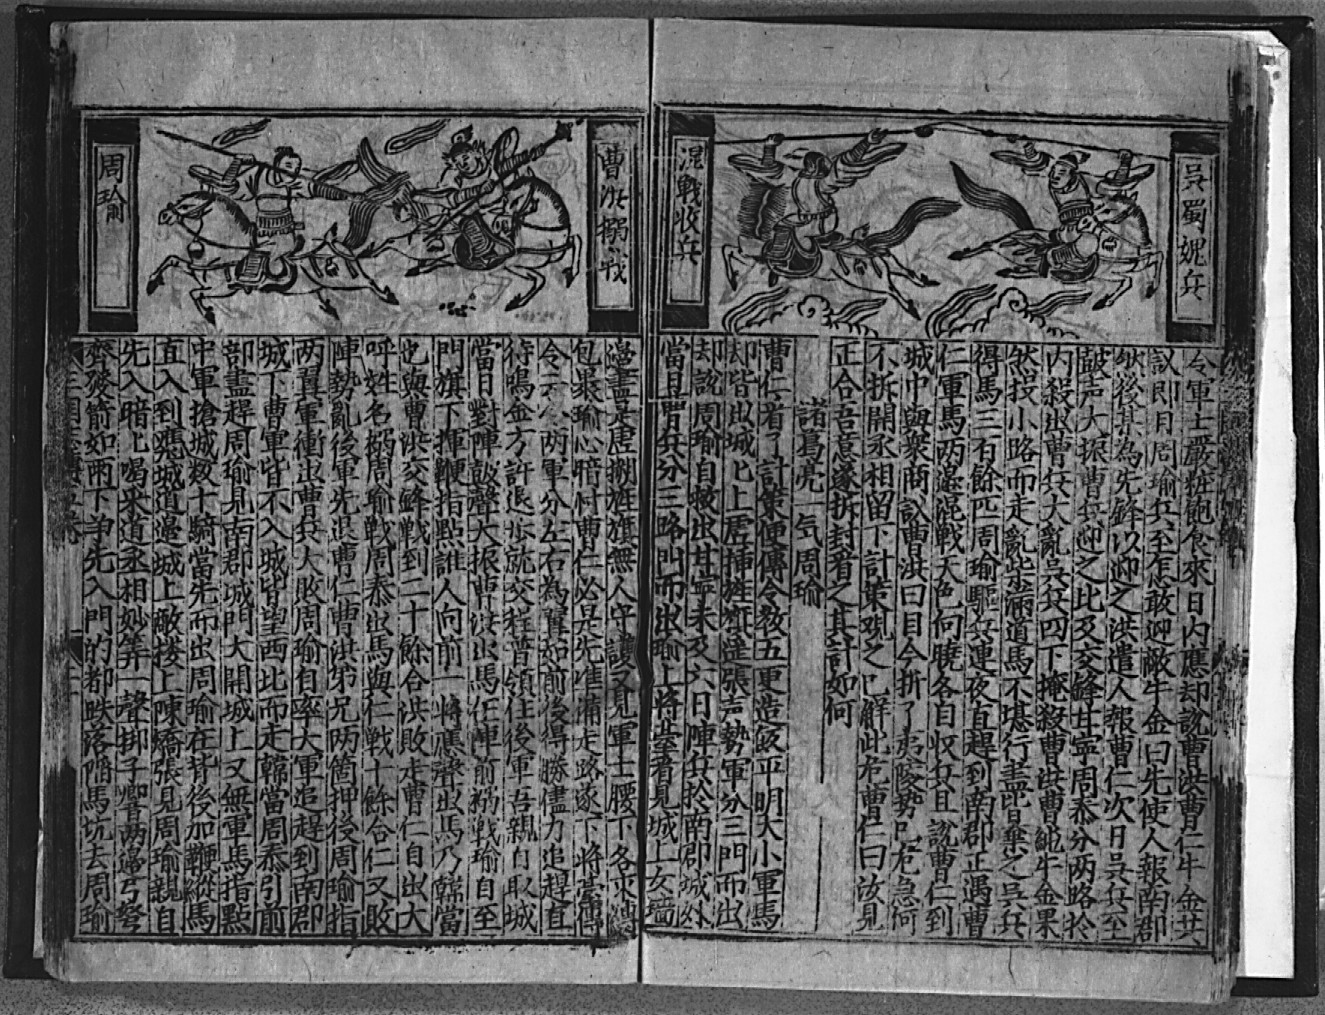 吳蜀䚟兵
混戰收兵
令軍士嚴粧飽食來日內應却說曹洪曹仁牛金共
議即日周瑜兵至怎敢迎敵牛金曰先使人報南郡
然後某為先鋒以迎之洪遣人報曹仁次日吳兵至
皷声大振曹兵迎之比及交鋒甘寧周泰分两路扵
內殺出曹兵大亂吳兵四下掩殺曹洪曹純牛金果
然投小路而走亂柴滿道馬不堪行盖皆棄之吳兵
得馬三百餘匹周瑜驅兵連夜直趕到南郡正遇曹
仁軍馬两邉混戰天色向曉各自収兵且說曹仁到
城中與衆商議曹洪曰目今折了夷陵勢已危急何
不拆開丞相留下計策覌之以解此危曹仁曰汝見
正合吾意遂拆封看之其計如何
諸葛亮一气周瑜
曹仁看了計策便傳令教五更造飯平明大小軍馬
却皆出城比上虗揷旌旂滛張声勢軍分三門而出
却說周瑜自救出甘寧未及六日陣兵扵南郡城外
當日曹兵分三路門而出瑜上將臺看見城上女墻
曹洪搦戰
周瑜
邉盡是虗捌旌旗無人守護又見軍士腰下各束縛
包裹瑜心暗忖曹仁必是先准俻走路遂下將臺傳
令 两軍分左右為翼如前後得勝儘力追趕直
待鳴金方許退步就交程普領住後軍吾親自取城
當日對陣皷聲大振曹洪出馬在陣前搦戰瑜自至
門旗下揮鞭指點誰人向前一將應聲出馬乃韓當
也與曹洪交鋒戰到二十餘合洪敗走曹仁自出大
呼姓名搦周瑜戰周泰出馬與仁戰十餘合仁又敗
陣勢亂後軍先退曹仁曹洪弟兄两箇押後周瑜指
两翼軍衝出曹兵大敗周瑜自率大軍追趕到南郡
城下曹軍皆不入城皆望西北而走韓當周泰引前
部盡趕周瑜見南郡城門大開城上又無軍馬指點
中軍搶城数十騎當先而出周瑜在背後加鞭縱馬
直入到甕城道邉城上敵楼上陳矯張見周瑜親自
先入暗暗喝采道丞相妙筭一聲梆子響两邉弓弩
齊發箭如雨下爭先入門的都跌落陷馬坑去周瑜